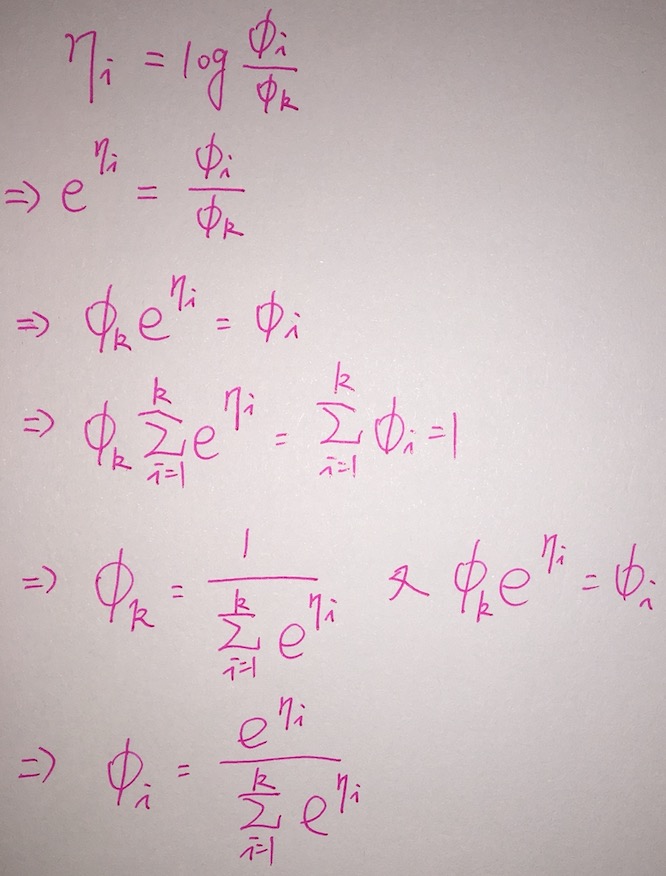 η_i = log ϕ_i/ϕ_k
⇒ e^{η_i} = ϕ_i/ϕ_k
⇒ ϕ_k e^{η_i} = ϕ_i
⇒ ϕ_k ∑_{i=1}^{k} e^{η_i} = ∑_{i=1}^{k} ϕ_i = 1
⇒ ϕ_k = 1/(∑_{i=1}^{k} e^{η_i}) 又 ϕ_k e^{η_i} = ϕ_i
⇒ ϕ_i = e^{η_i}/(∑_{i=1}^{k} e^{η_i})